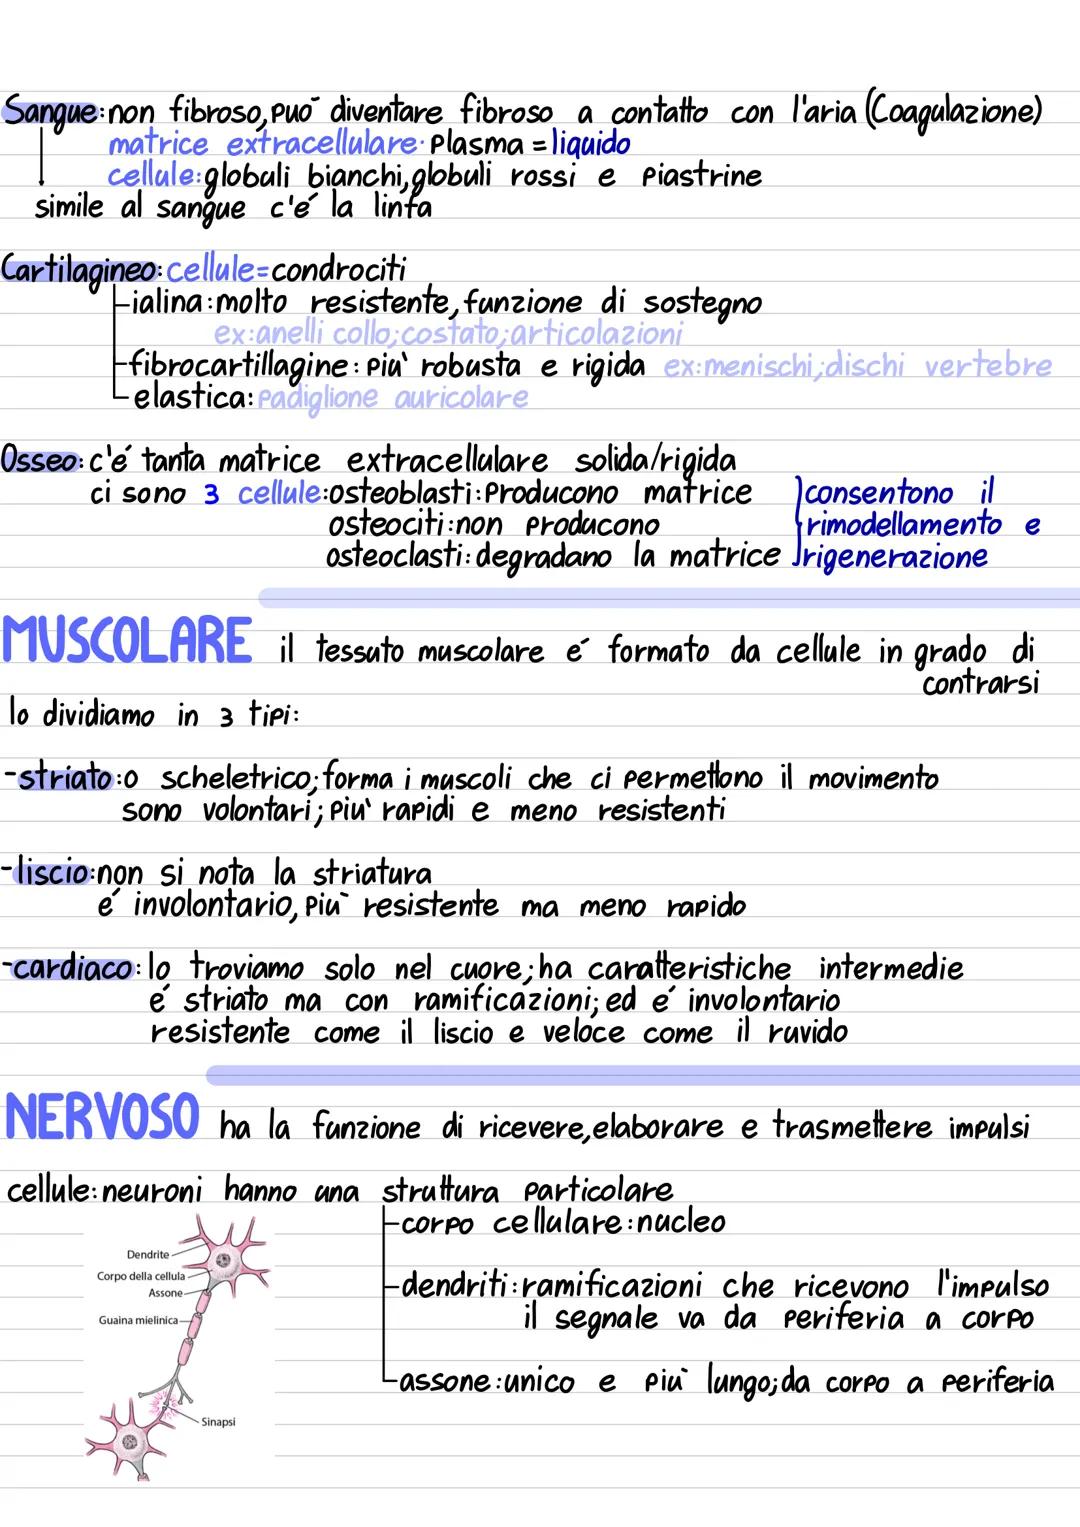 Sangue: non fibroso, può diventare fibroso a contatto con l'aria (Coagulazione)
matrice extracellulare: plasma = liquido
cellule: globuli bianchi, globuli rossi e piastrine
simile al sangue c'é la linfa
Cartilagineo: cellule=condrociti
-ialina: molto resistente, funzione di sostegno
ex: anelli collo; costato; articolazioni
-fibrocartillagine: piu' robusta e rigida ex: menischi; dischi vertebre
-elastica: padiglione auricolare
Osseo: c'é tanta matrice extracellulare solida/rigida
ci sono 3 cellule: osteoblasti: producono matrice consentono il
osteociti: non producono rimodellamento e
osteoclasti: degradano la matrice rigenerazione
MUSCOLARE il tessuto muscolare é formato da cellule in grado di
contrarsi
lo dividiamo in 3 tipi:
-striato: o scheletrico; forma i muscoli che ci permettono il movimento
sono volontari; piu' rapidi e meno resistenti
-liscio: non si nota la striatura
é involontario, più resistente ma meno rapido
-cardiaco: lo troviamo solo nel cuore; ha caratteristiche intermedie
é striato ma con ramificazioni; ed é involontario
resistente come il liscio e veloce come il ruvido
NERVOSO ha la funzione di ricevere, elaborare e trasmettere impulsi
cellule: neuroni hanno una struttura particolare
-corpo cellulare: nucleo
Dendrite
Corpo della cellula
Assone
Guaina mielinica
Sinapsi
-dendriti: ramificazioni che ricevono l'impulso
il segnale va da periferia a corpo
-assone: unico e più lungo; da corpo a periferia